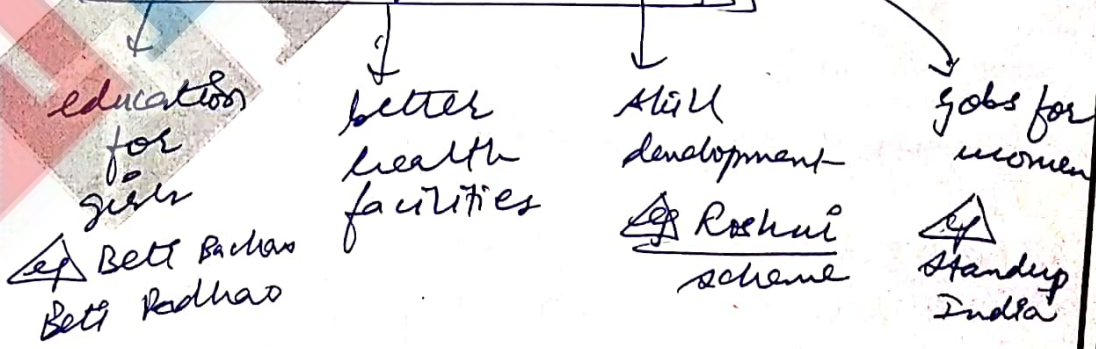 education
for
girls
eg Beti Bachao
Beti Padhao
better
health
facilities
skill
development
eg Roshni
scheme
jobs for
women
eg
Standup
India